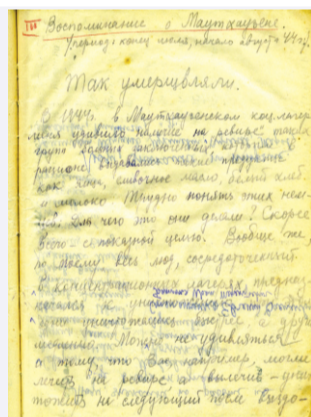 III Воспоминание о Маутхаузене.
(период: конец июля, начало августа 44 г.)
Так умерщвляли.
В 1944 г. в Маутхаузенском концлагере
меня удивило наличие на ревире такая
группа больных заключенных, которым в
рационе выдавались такие продукты
как сливочное масло, белый хлеб
и молоко. Трудно понять этих
для чего это они делали? Скорее
всего - с показной целью. Вообще же,
по моему весь люд, сосредоточенный
в концентрационных лагерях, предназ-
начался к уничтожению
уничтожались быстрее а другие
медленно. Можно не удивляться
а тому, что Вас, например, могли
лечить на ревире а вылечив - унич-
тожить на следующий после выздо-